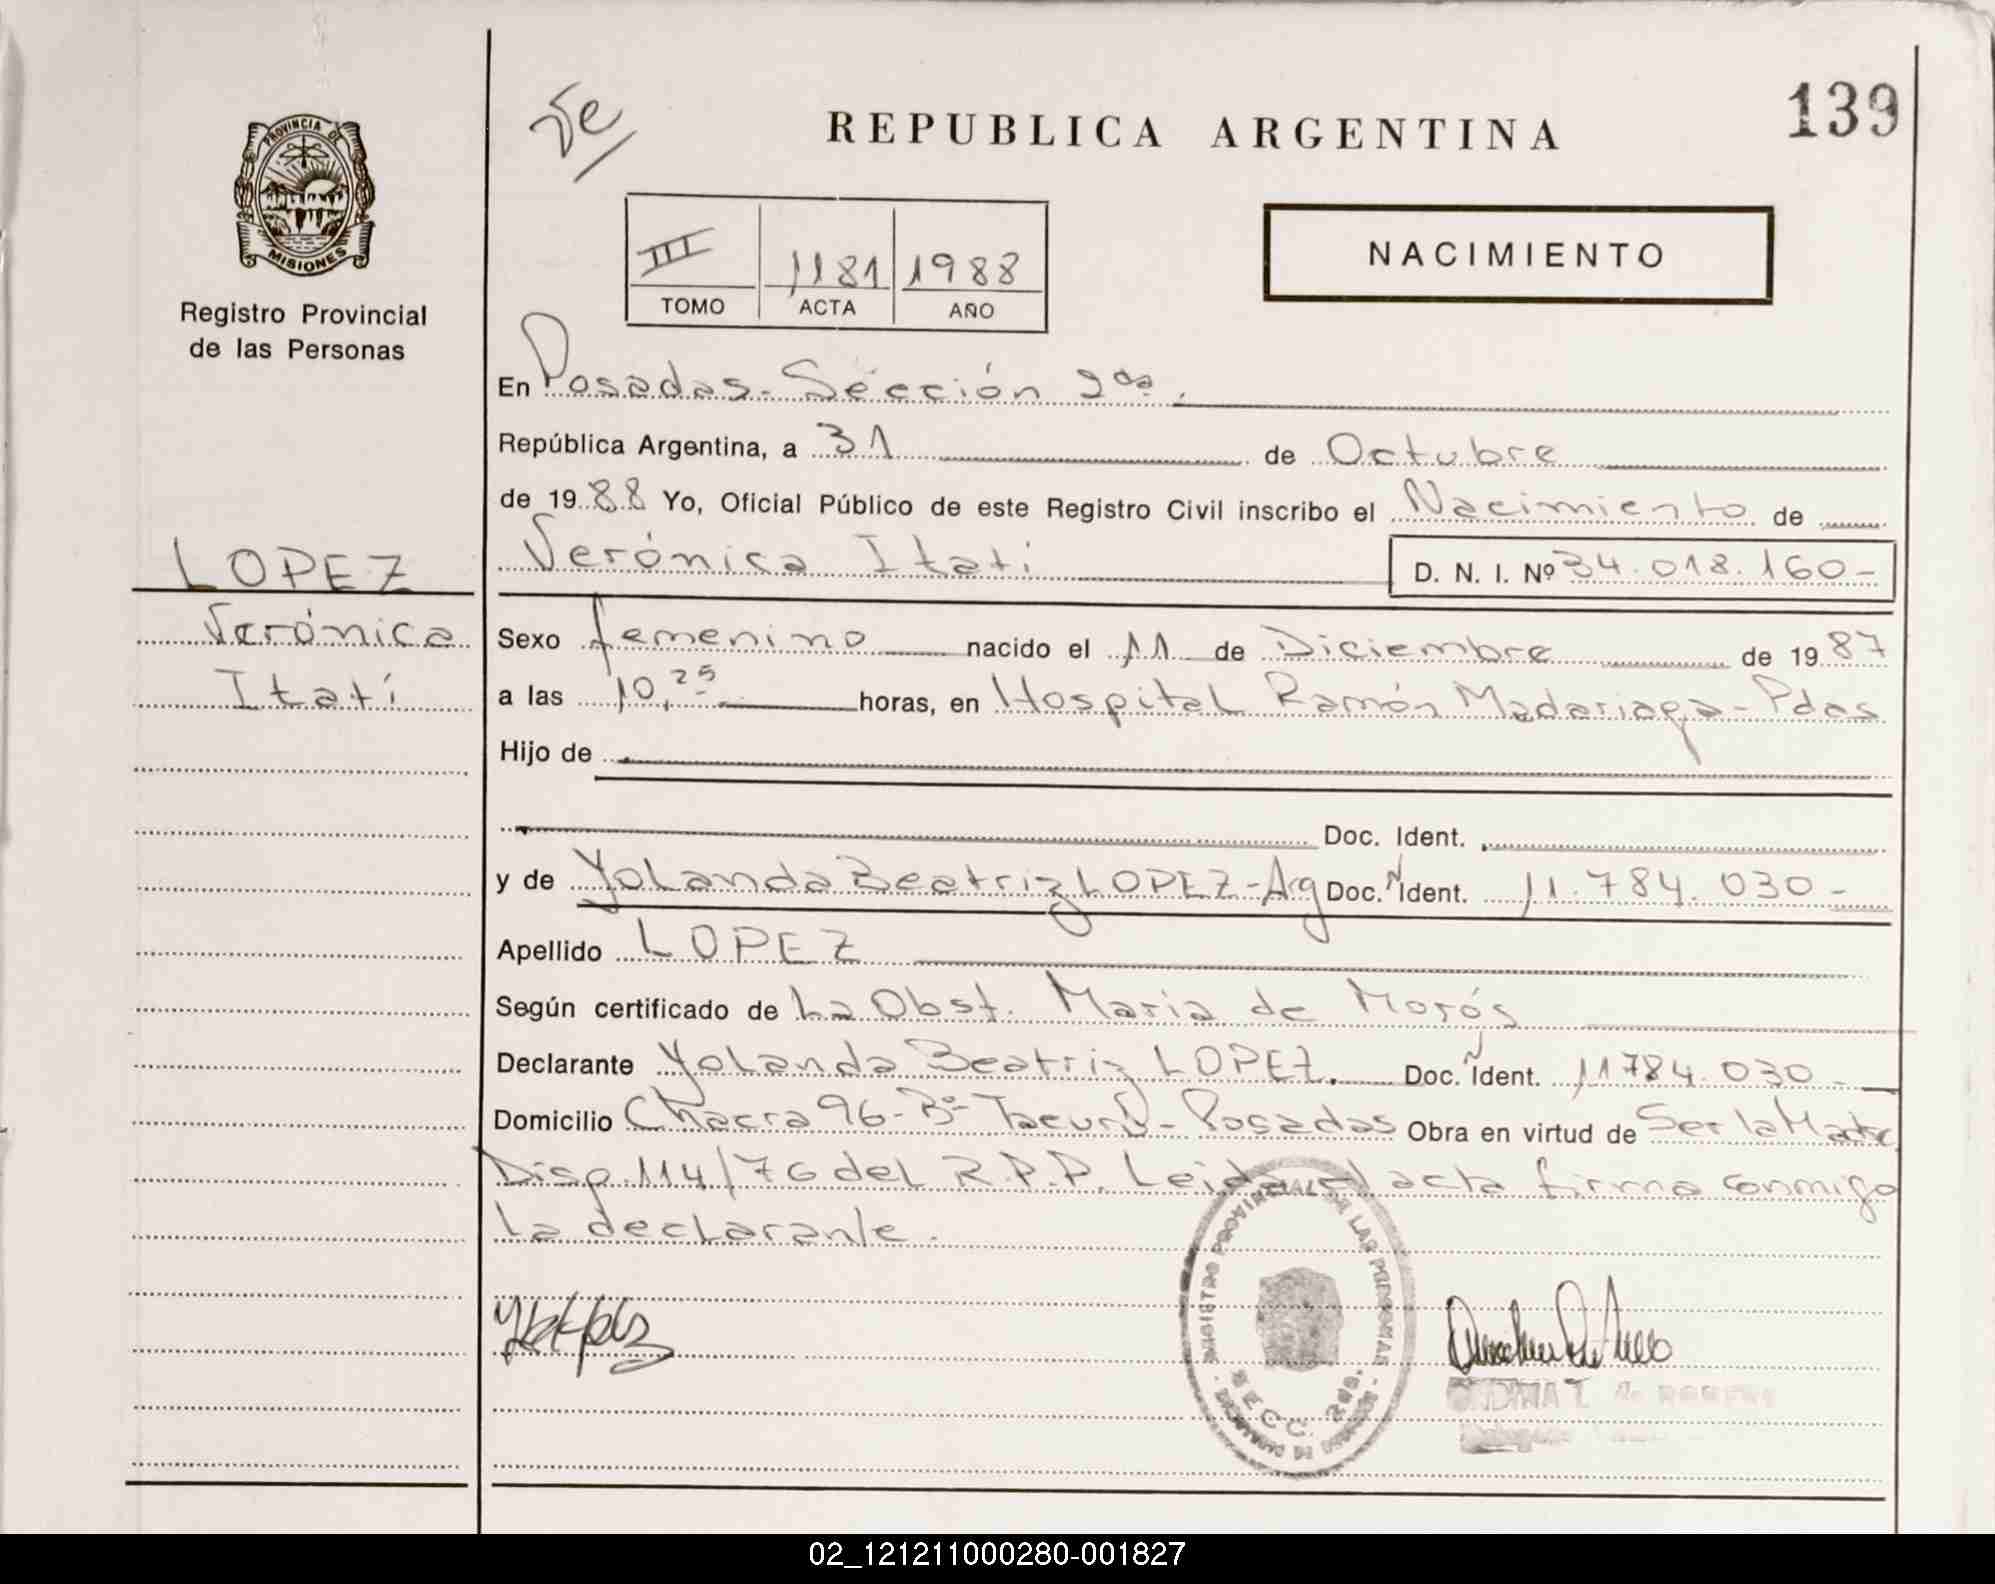 139
Ve
REPUBLICA ARGENTINA
PROVINCIA DE
MISIONES
Registro Provincial
de las Personas
III 1181 1988
TOMO ACTA AÑO
NACIMIENTO
En Posadas-Sección 2da.
República Argentina, a 31 de Octubre
de 1988 Yo, Oficial Público de este Registro Civil inscribo el Nacimiento de
Verónica Itatí D. N. I. Nº 34.018.160-
LOPEZ
Verónica
Itatí
Sexo femenino nacido el 11 de Diciembre de 1987
a las 10,25 horas, en Hospital Ramón Madariaga-Pdas
Hijo de
Doc. Ident.
y de Yolanda Beatriz LOPEZ-Arg Doc. Ident. 11.784.030-
Apellido LOPEZ
Según certificado de La Obst. Maria de Morós
Declarante Yolanda Beatriz LOPEZ. Doc. Ident. 11784.030-
Domicilio Chacra 96-Bº Tacurú-Posadas Obra en virtud de Ser la Madre
Disp.114/76 del R.P.P. Leida el acta firma conmigo
la declarante.
REGISTRO PROVINCIAL DE LAS PERSONAS
SECC. 2da.
02_121211000280-001827